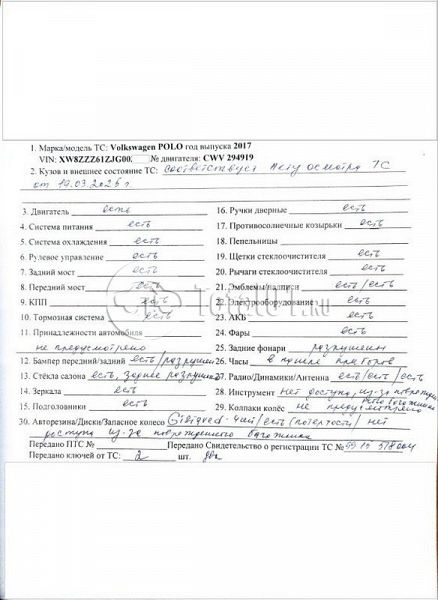 1. Марка/модель ТС: Volkswagen POLO год выпуска 2017
VIN: XW8ZZZ61ZJG00. № двигателя: CWV 294919
2. Кузов и внешнее состояние ТС: соответствует Акту осмотра ТС
от 19.03.2025 г.
3. Двигатель есть
4. Система питания есть
5. Система охлаждения есть
6. Рулевое управление есть
7. Задний мост есть
8. Передний мост есть
9. КПП есть
10. Тормозная система есть
11. Принадлежности автомобиля
не предусмотрено
12. Бампер передний/задний есть/разрушен
13. Стёкла салона есть, заднее разрушено
14. Зеркала есть
15. Подголовники есть
16. Ручки дверные есть
17. Противосолнечные козырьки есть
18. Пепельницы
19. Щетки стеклоочистителя есть
20. Рычаги стеклоочистителя есть
21. Эмблемы/надписи есть/есть
22. Электрооборудование есть
23. АКБ есть
24. Фары есть
25. Задние фонари разрушены
26. Часы в панели приборов
27. Радио/Динамики/Антенна есть/есть/есть
28. Инструмент нет доступа, из-за повреждён
29. Колпаки колёс не предусмотрено
30. Авторезина/Диски/Запасное колесо Gislaved-4шт/есть (потёртости)/нет
доступа из-за повреждённого багажника
Передано ПТС № Передано Свидетельство о регистрации ТС №
Передано ключей от ТС: 2 шт. два
TOPLOT.RU